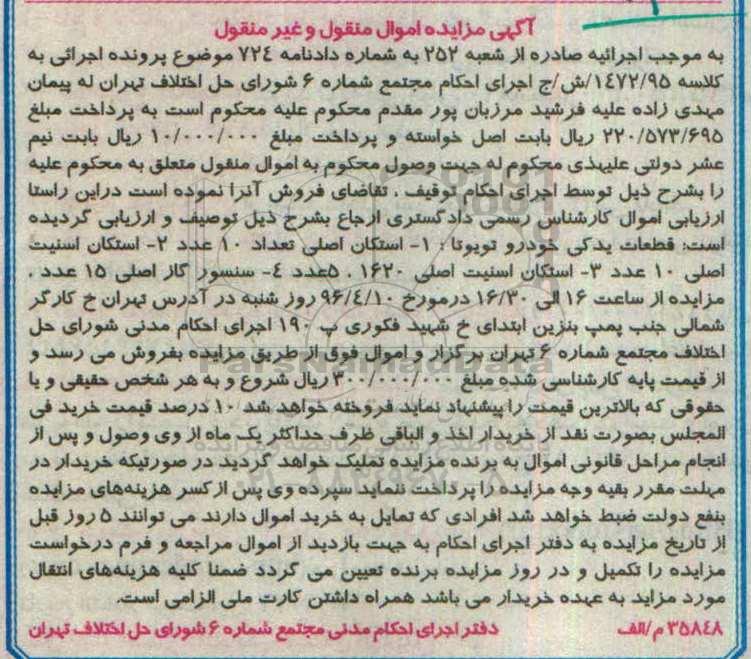 آگهی مزایده اموال منقول و غیر منقول
به موجب اجرائیه صادره از شعبه ۲۵۲ به شماره دادنامه ۷۲۴ موضوع پرونده اجرائی به
کلاسه ۱۴۷۲/۹۵/ش/ج اجرای احکام مجتمع شماره ۶ شورای حل اختلاف تهران له پیمان
مهدی زاده علیه فرشید مرزبان پور مقدم محکوم علیه محکوم است به پرداخت مبلغ
۲۲۰/۵۷۳/۶۹۵ ریال بابت اصل خواسته و پرداخت مبلغ ۱۰/۰۰۰/۰۰۰ ریال بابت نیم
عشر دولتی علیهذی محکوم له جهت وصول محکوم به اموال منقول متعلق به محکوم علیه
را بشرح ذیل توسط اجرای احکام توقیف ، تقاضای فروش آنرا نموده است دراین راستا
ارزیابی اموال کارشناس رسمی دادگستری ارجاع بشرح ذیل توصیف و ارزیابی گردیده
است: قطعات یدکی خودرو تویوتا : ۱- استکان اصلی تعداد ۱۰ عدد ۲- استکان اسنیت
اصلی ۱۰ عدد ۳- استکان اسنیت اصلی ۱۶۲۰ ، ۵عدد ٤- سنسور گاز اصلی ۱۵ عدد ،
مزایده از ساعت ۱۶ الی ۱۶/۳۰ درمورخ ۹۶/٤/۱۰ روز شنبه در آدرس تهران خ کارگر
شمالی جنب پمپ بنزین ابتدای خ شهید فکوری پ ۱۹۰ اجرای احکام مدنی شورای حل
اختلاف مجتمع شماره ۶ تهران برگزار و اموال فوق از طریق مزایده بفروش می رسد و
از قیمت پایه کارشناسی شده مبلغ ۳۰۰/۰۰۰/۰۰۰ ریال شروع و به هر شخص حقیقی و یا
حقوقی که بالاترین قیمت را پیشنهاد نماید فروخته خواهد شد ۱۰ درصد قیمت خرید فی
المجلس بصورت نقد از خریدار اخذ و الباقی ظرف حداکثر یک ماه از وی وصول و پس از
انجام مراحل قانونی اموال به برنده مزایده تملیک خواهد گردید در صورتیکه خریدار در
مهلت مقرر بقیه وجه مزایده را پرداخت ننماید سپرده وی پس از کسر هزینه‌های مزایده
بنفع دولت ضبط خواهد شد افرادی که تمایل به خرید اموال دارند می توانند ۵ روز قبل
از تاریخ مزایده به دفتر اجرای احکام به جهت بازدید از اموال مراجعه و فرم درخواست
مزایده را تکمیل و در روز مزایده برنده تعیین می گردد ضمنا کلیه هزینه‌های انتقال
مورد مزاید به عهده خریدار می باشد همراه داشتن کارت ملی الزامی است.
۳۵۸٤۸ م/الف دفتر اجرای احکام مدنی مجتمع شماره ۶ شورای حل اختلاف تهران
ParsNamadData